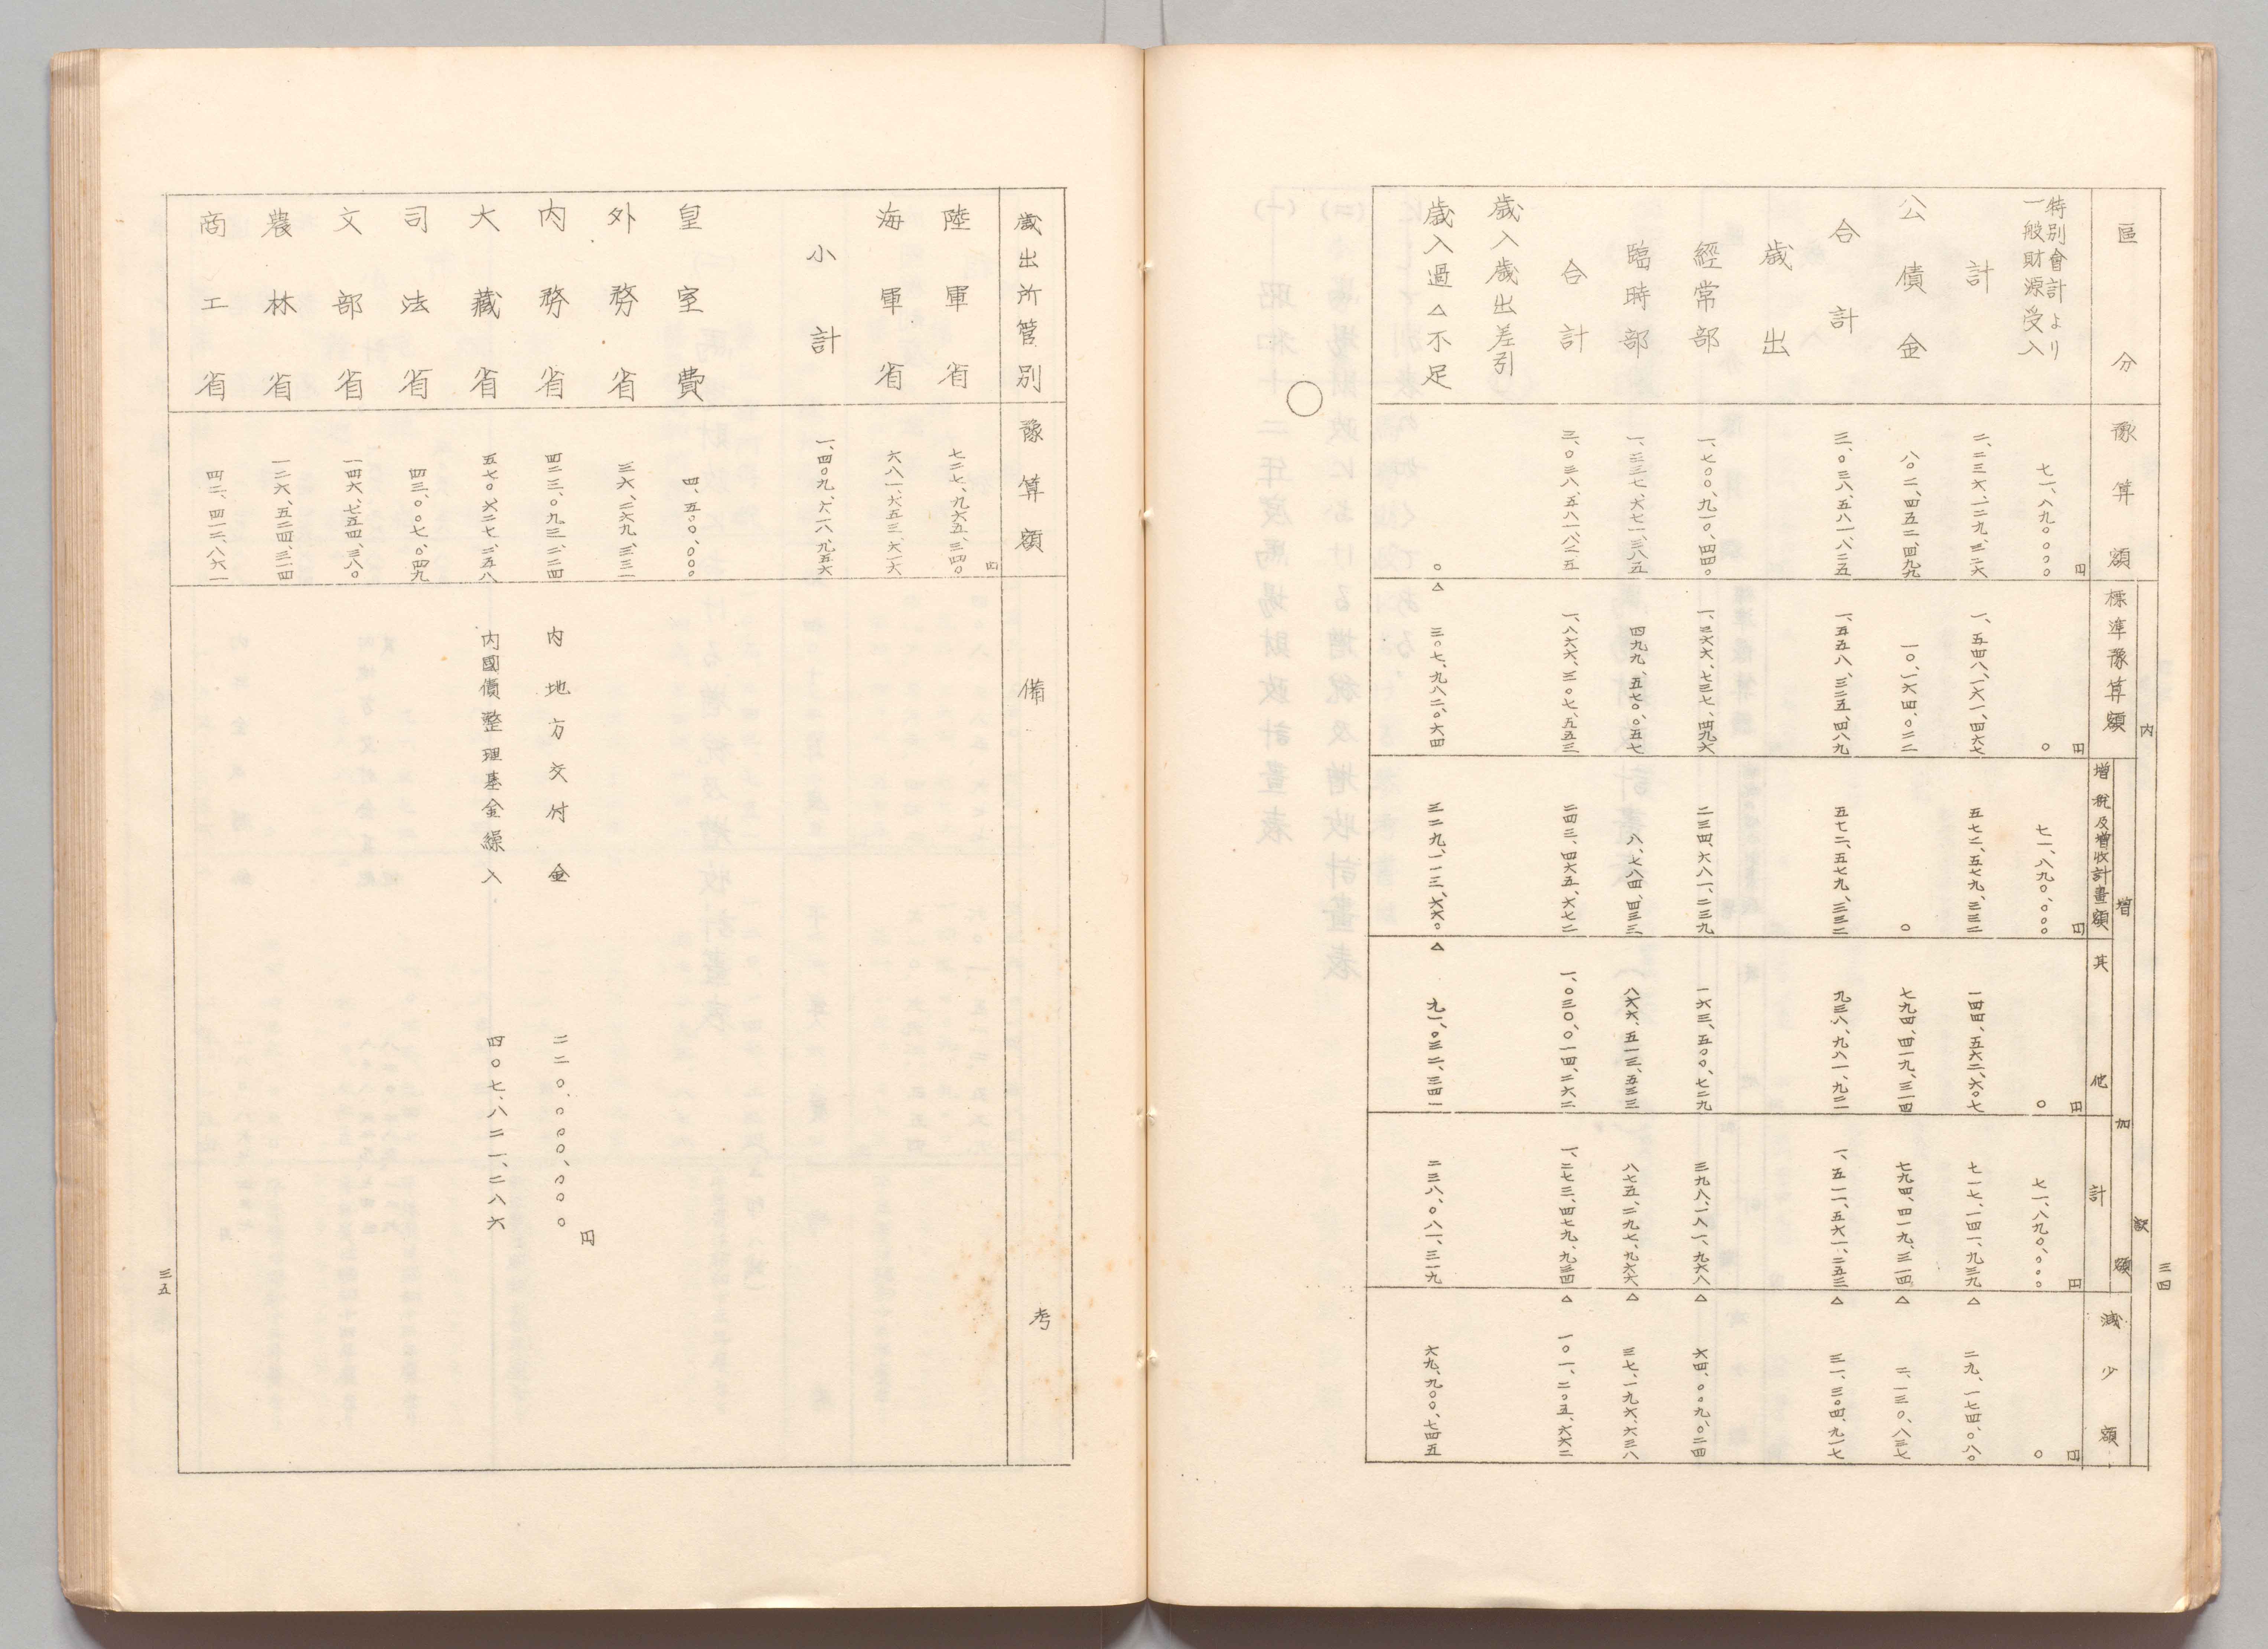 三四
內譯
增加額
區分 豫算額 標準豫算額 增稅及增收計畫額 其他 計 減少額
円 円 円 円 円 円
特別會計より
一般財源受入 七一、八九〇、〇〇〇 〇 七一、八九〇、〇〇〇 〇 七一、八九〇、〇〇〇 〇
計 二、二三六、一二九、三二六 一、五四八、一六一、四六七 五七二、五七九、三三二 一四四、五六二、六〇七 七一七、一四一、九三九 △二九、一七四、〇八〇
公債金 八〇二、四五二、四九九 一〇、一六四、〇二二 〇 七九四、四一九、三一四 七九四、四一九、三一四 △二、一三〇、八三七
合計 三、〇三八、五八一、八二五 一、五五八、三二五、四八九 五七二、五七九、三三二 九三八、九八一、九二一 一、五一一、五六一、二五三 △三一、三〇四、九一七
歲出
經常部 一、七〇〇、九一〇、四四〇 一、三六六、七三七、四九六 二三四、六八一、二三九 一六三、五〇〇、七二九 三九八、一八一、九六八 △六四、〇〇九、〇二四
臨時部 一、三三七、六七一、三八五 四九九、五七〇、〇五七 八、七八四、四三三 八六六、五一三、五三三 八七五、二九七、九六六 △三七、一九六、六三八
合計 三、〇三八、五八一、八二五 一、八六六、三〇七、五五三 二四三、四六五、六七二 一、〇三〇、〇一四、二六二 一、二七三、四七九、九三四 △一〇一、二〇五、六六二
歲入歲出差引
歲入過△不足 〇 △三〇七、九八二、〇六四 三二九、一一三、六六〇 △九一、〇三二、三四一 二三八、〇八一、三一九 六九、九〇〇、七四五
歲出所管別 豫算額 備考
円
陸軍省 七二七、九六五、三四〇
海軍省 六八一、六五三、六一六
小計 一、四〇九、六一八、九五六
皇室費 四、五〇〇、〇〇〇
外務省 三六、二六九、三三一
円
內務省 四二三、〇九三、二二四 內地方交付金 二二〇、〇〇〇、〇〇〇
大藏省 五七〇、六二七、二五八 內國債整理基金繰入 四〇七、八二一、二八六
司法省 四三、〇〇七、〇四九
文部省 一四六、七五四、三八〇
農林省 一二六、五二四、三一四
商工省 四二、四一二、八六一
三五